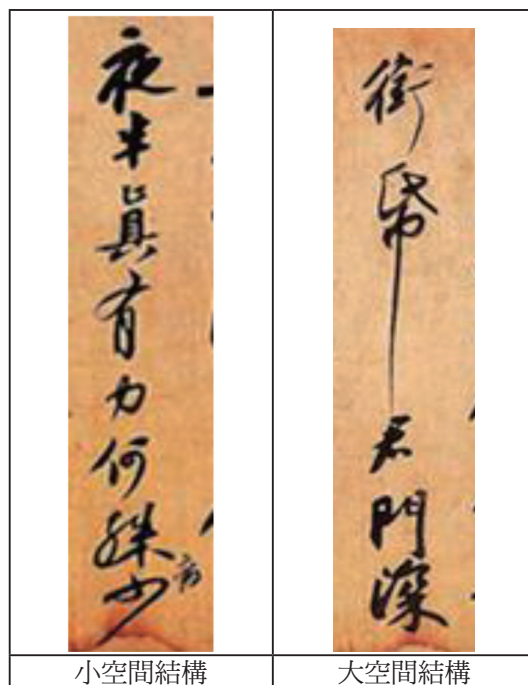 夜半真有力何殊少
病
銜帋君門深
小空間結構
大空間結構